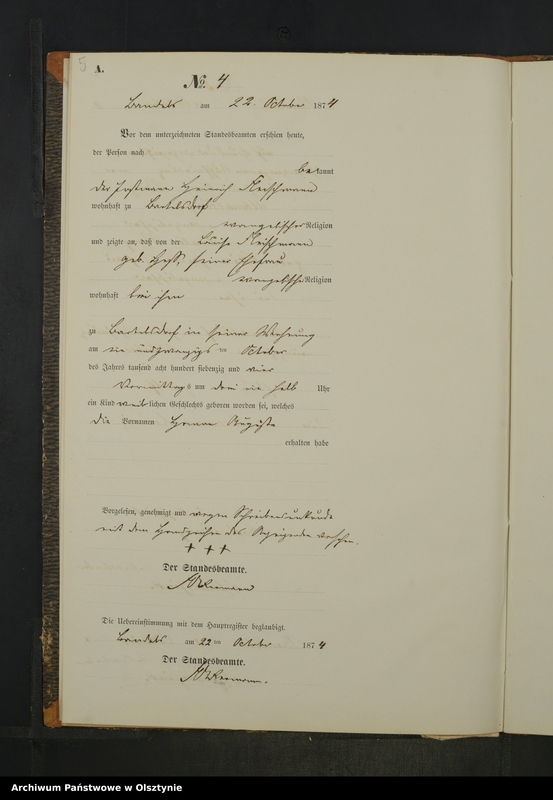 5
A.
No. 4
Bandels am 22. October 1874
Vor dem unterzeichneten Standesbeamten erschien heute,
der Person nach
bekannt
der Instmann Heinrich Fleischmann
wohnhaft zu Bartelsdorf
evangelischer Religion
und zeigte an, daß von der Louise Fleischmann
geb. Hess seiner Ehefrau
evangelischer Religion
wohnhaft bei ihm
zu Bartelsdorf in seiner Wohnung
am ein und zwanzigsten October
des Jahres tausend acht hundert siebenzig und vier
Vormittags um drei ein halb Uhr
ein Kind weiblichen Geschlechts geboren worden sei, welches
die Vornamen Auguste
erhalten habe
Vorgelesen, genehmigt und wegen Schreibensunkunde
mit dem Handzeichen des Anzeigenden versehen.
+ + +
Der Standesbeamte.
Die Uebereinstimmung mit dem Hauptregister beglaubigt.
Bandels am 22ten October 1874
Der Standesbeamte.
Archiwum Państwowe w Olsztynie